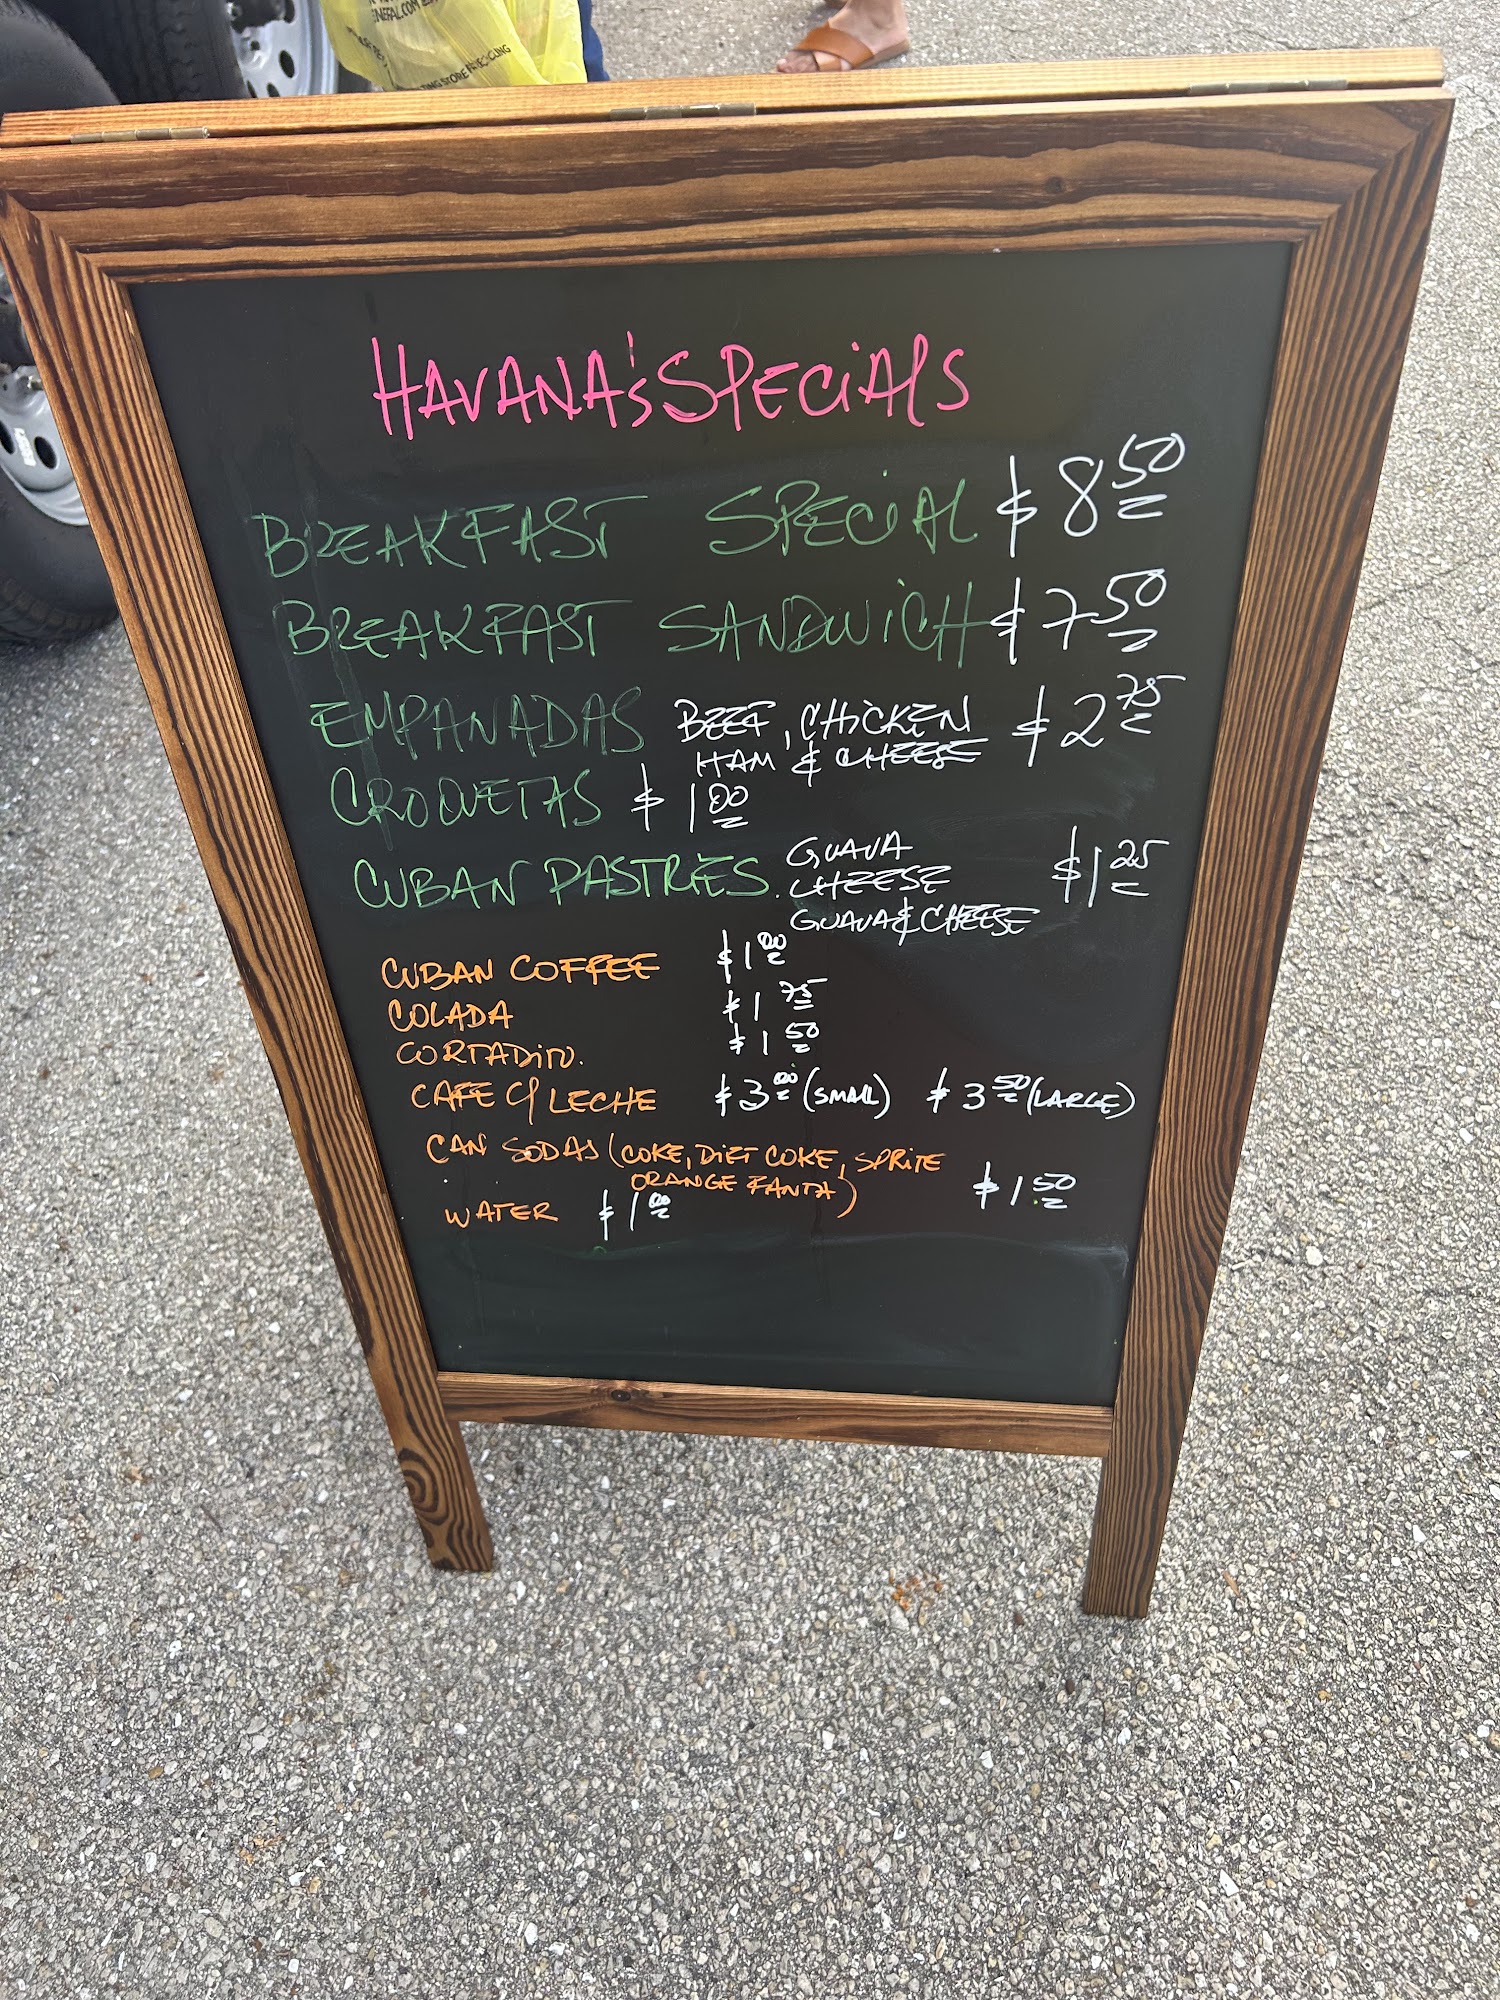 HAVANA'S SPECIALS
BREAKFAST SPECIAL $8 50
BREAKFAST SANDWICH $7 50
EMPANADAS BEEF, CHICKEN $2 75
HAM & CHEESE
CROQUETAS $1 00
GUAVA
CUBAN PASTRIES. CHEESE $1 25
GUAVA & CHEESE
CUBAN COFFEE $1 00
COLADA $1 75
CORTADITO. $1 50
CAFE C/ LECHE $3 00 (SMALL) $3 50 (LARGE)
CAN SODAS (COKE, DIET COKE, SPRITE
ORANGE FANTA) $1 50
WATER $1 00